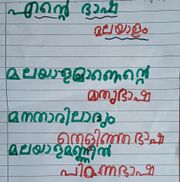 എന്റെ ഭാഷ
മലയാളം
മലയാളമാണെന്റെ
മതൃഭാഷ
മനതാരിലാദ്യം
തെളിഞ്ഞ ഭാഷ
മലയാളമണ്ണിൽ
പിറന്നഭാഷ